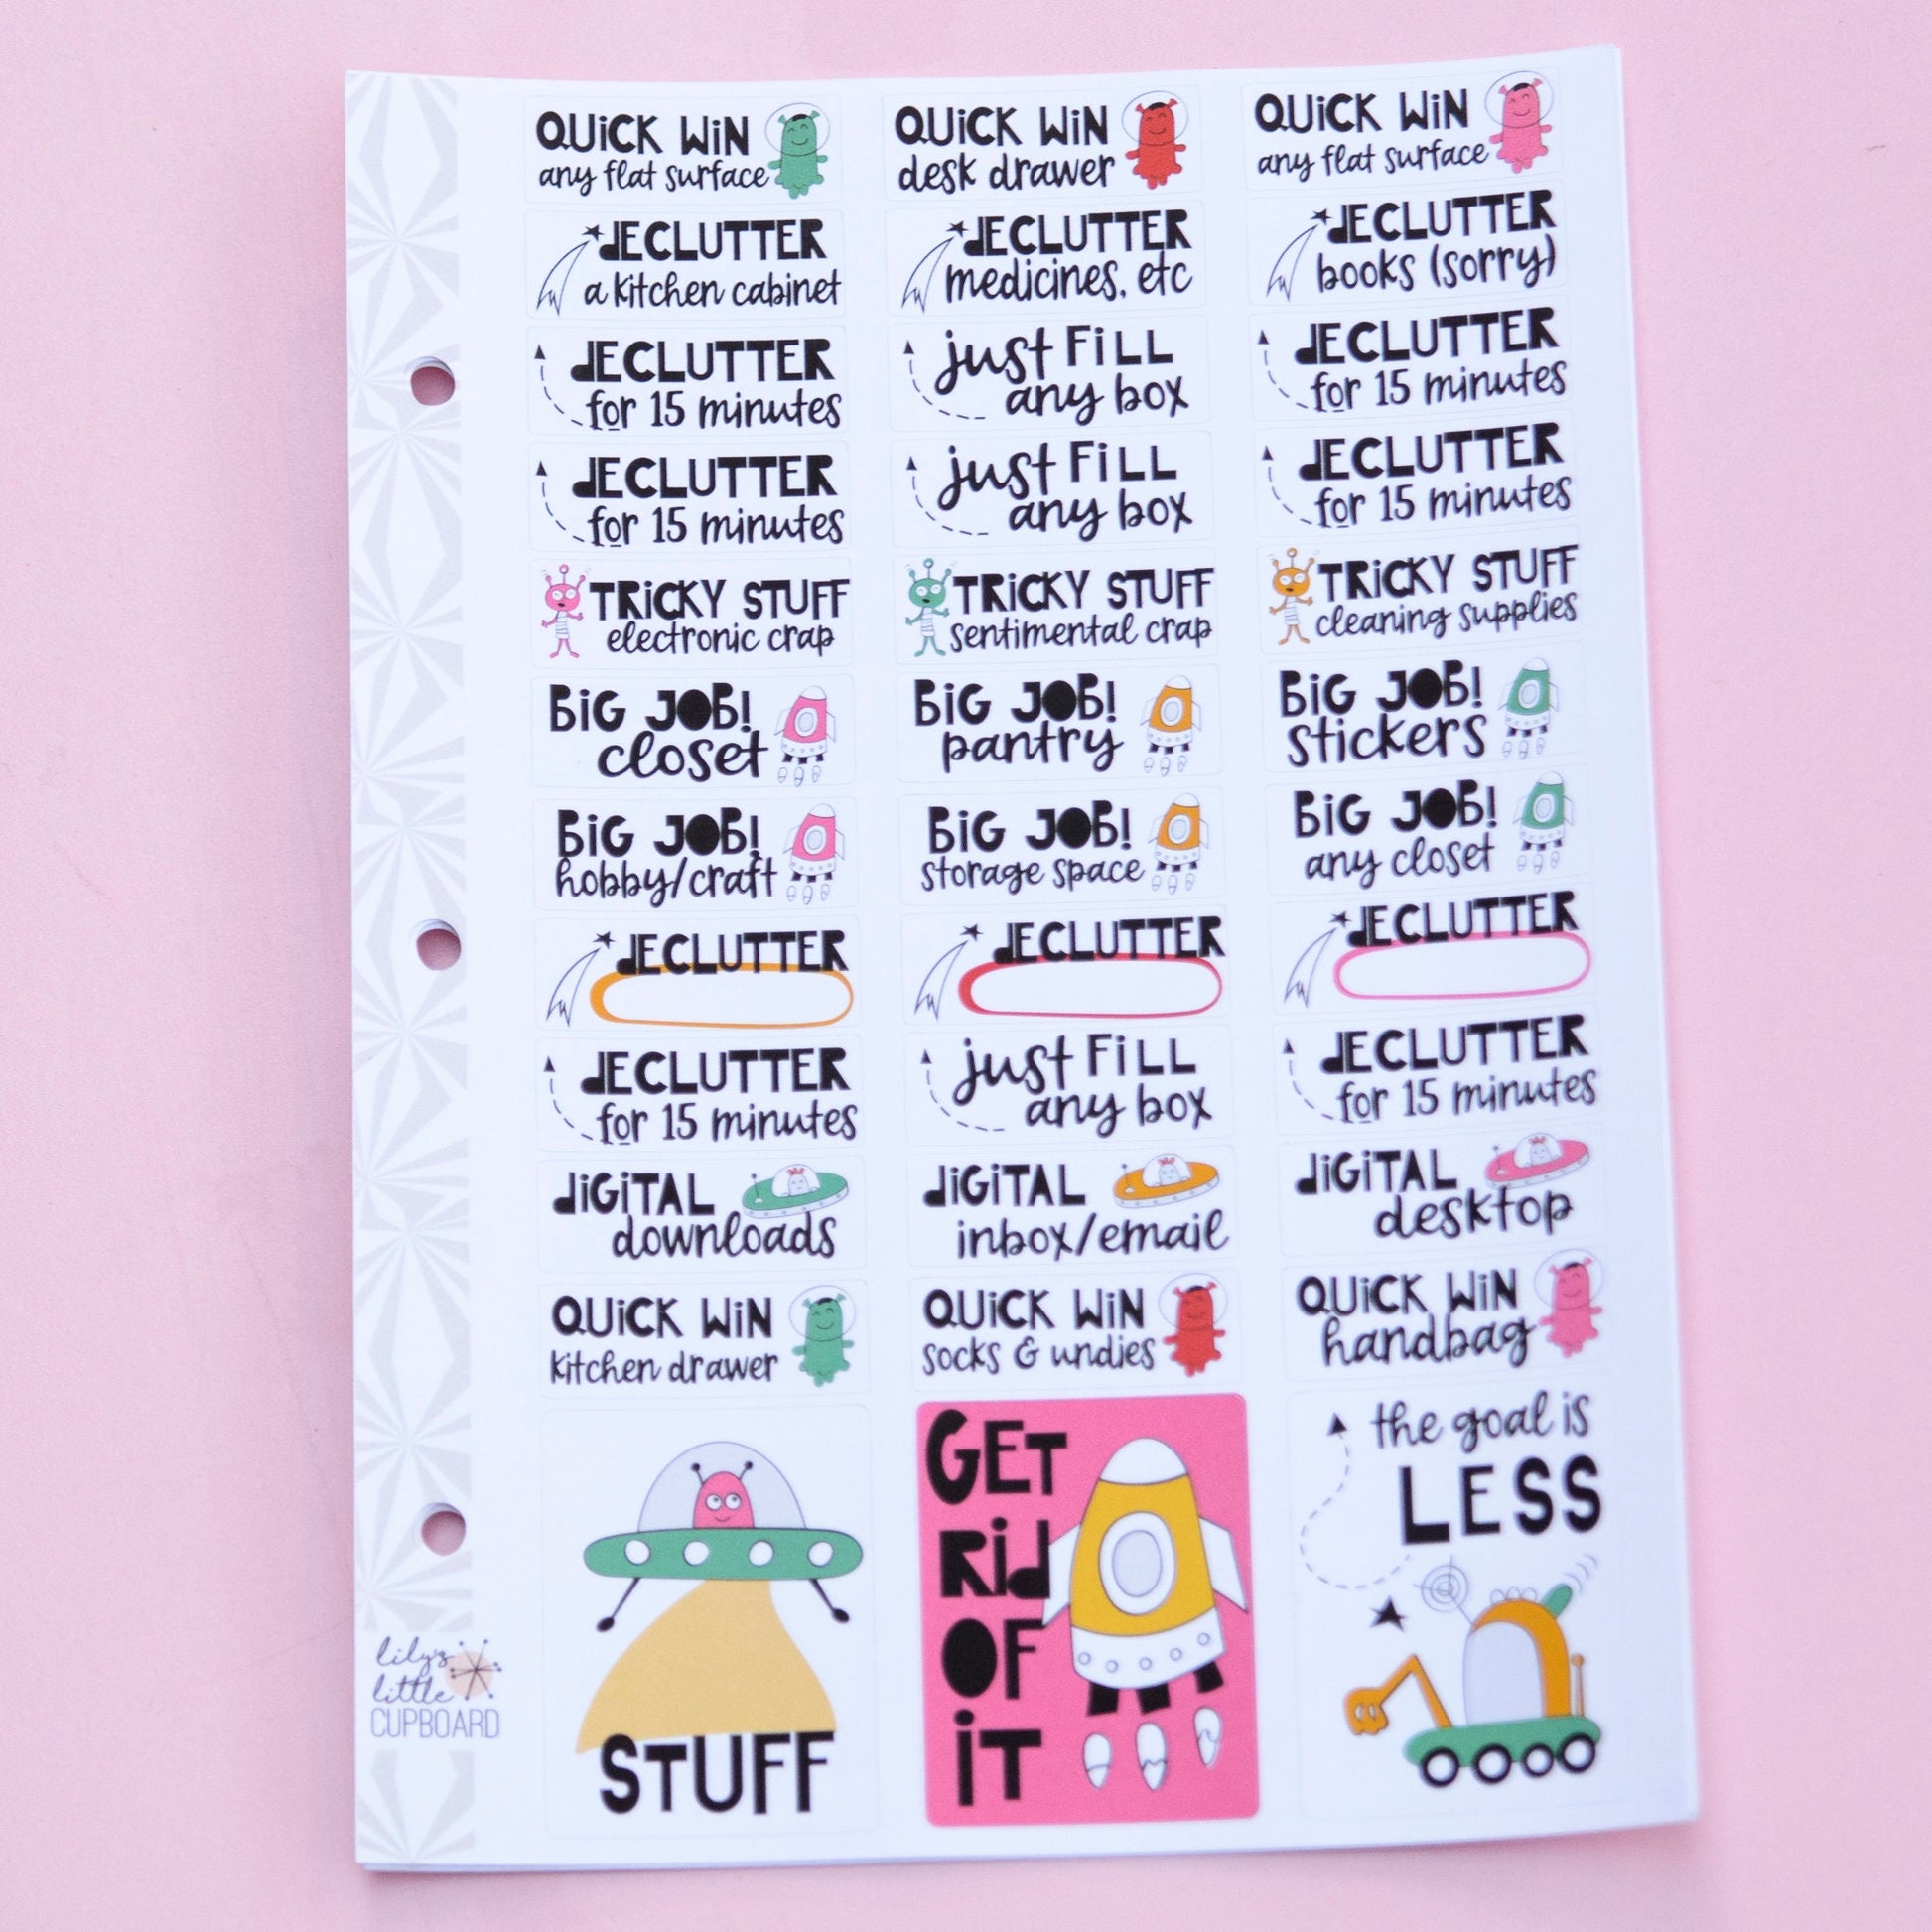 QUiCK WiN
any flat surface
QUiCK WiN
desk drawer
QUiCK WiN
any flat surface
dECLUTTER
a kitchen cabinet
dECLUTTER
medicines, etc
dECLUTTER
books (sorry)
dECLUTTER
for 15 minutes
just FiLL
any box
dECLUTTER
for 15 minutes
dECLUTTER
for 15 minutes
just FiLL
any box
dECLUTTER
for 15 minutes
TRiCKY STUFF
electronic crap
TRiCKY STUFF
sentimental crap
TRiCKY STUFF
cleaning supplies
BiG JOB!
closet
BiG JOB!
pantry
BiG JOB!
stickers
BiG JOB!
hobby/craft
BiG JOB!
storage space
BiG JOB!
any closet
dECLUTTER
dECLUTTER
dECLUTTER
dECLUTTER
for 15 minutes
just FiLL
any box
dECLUTTER
for 15 minutes
diGiTAL
downloads
diGiTAL
inbox/email
diGiTAL
desktop
QUiCK WiN
kitchen drawer
QUiCK WiN
socks & undies
QUiCK WiN
handbag
STUFF
GET
Rid
OF
iT
the goal is
LESS
lily's
little
CUPBOARD